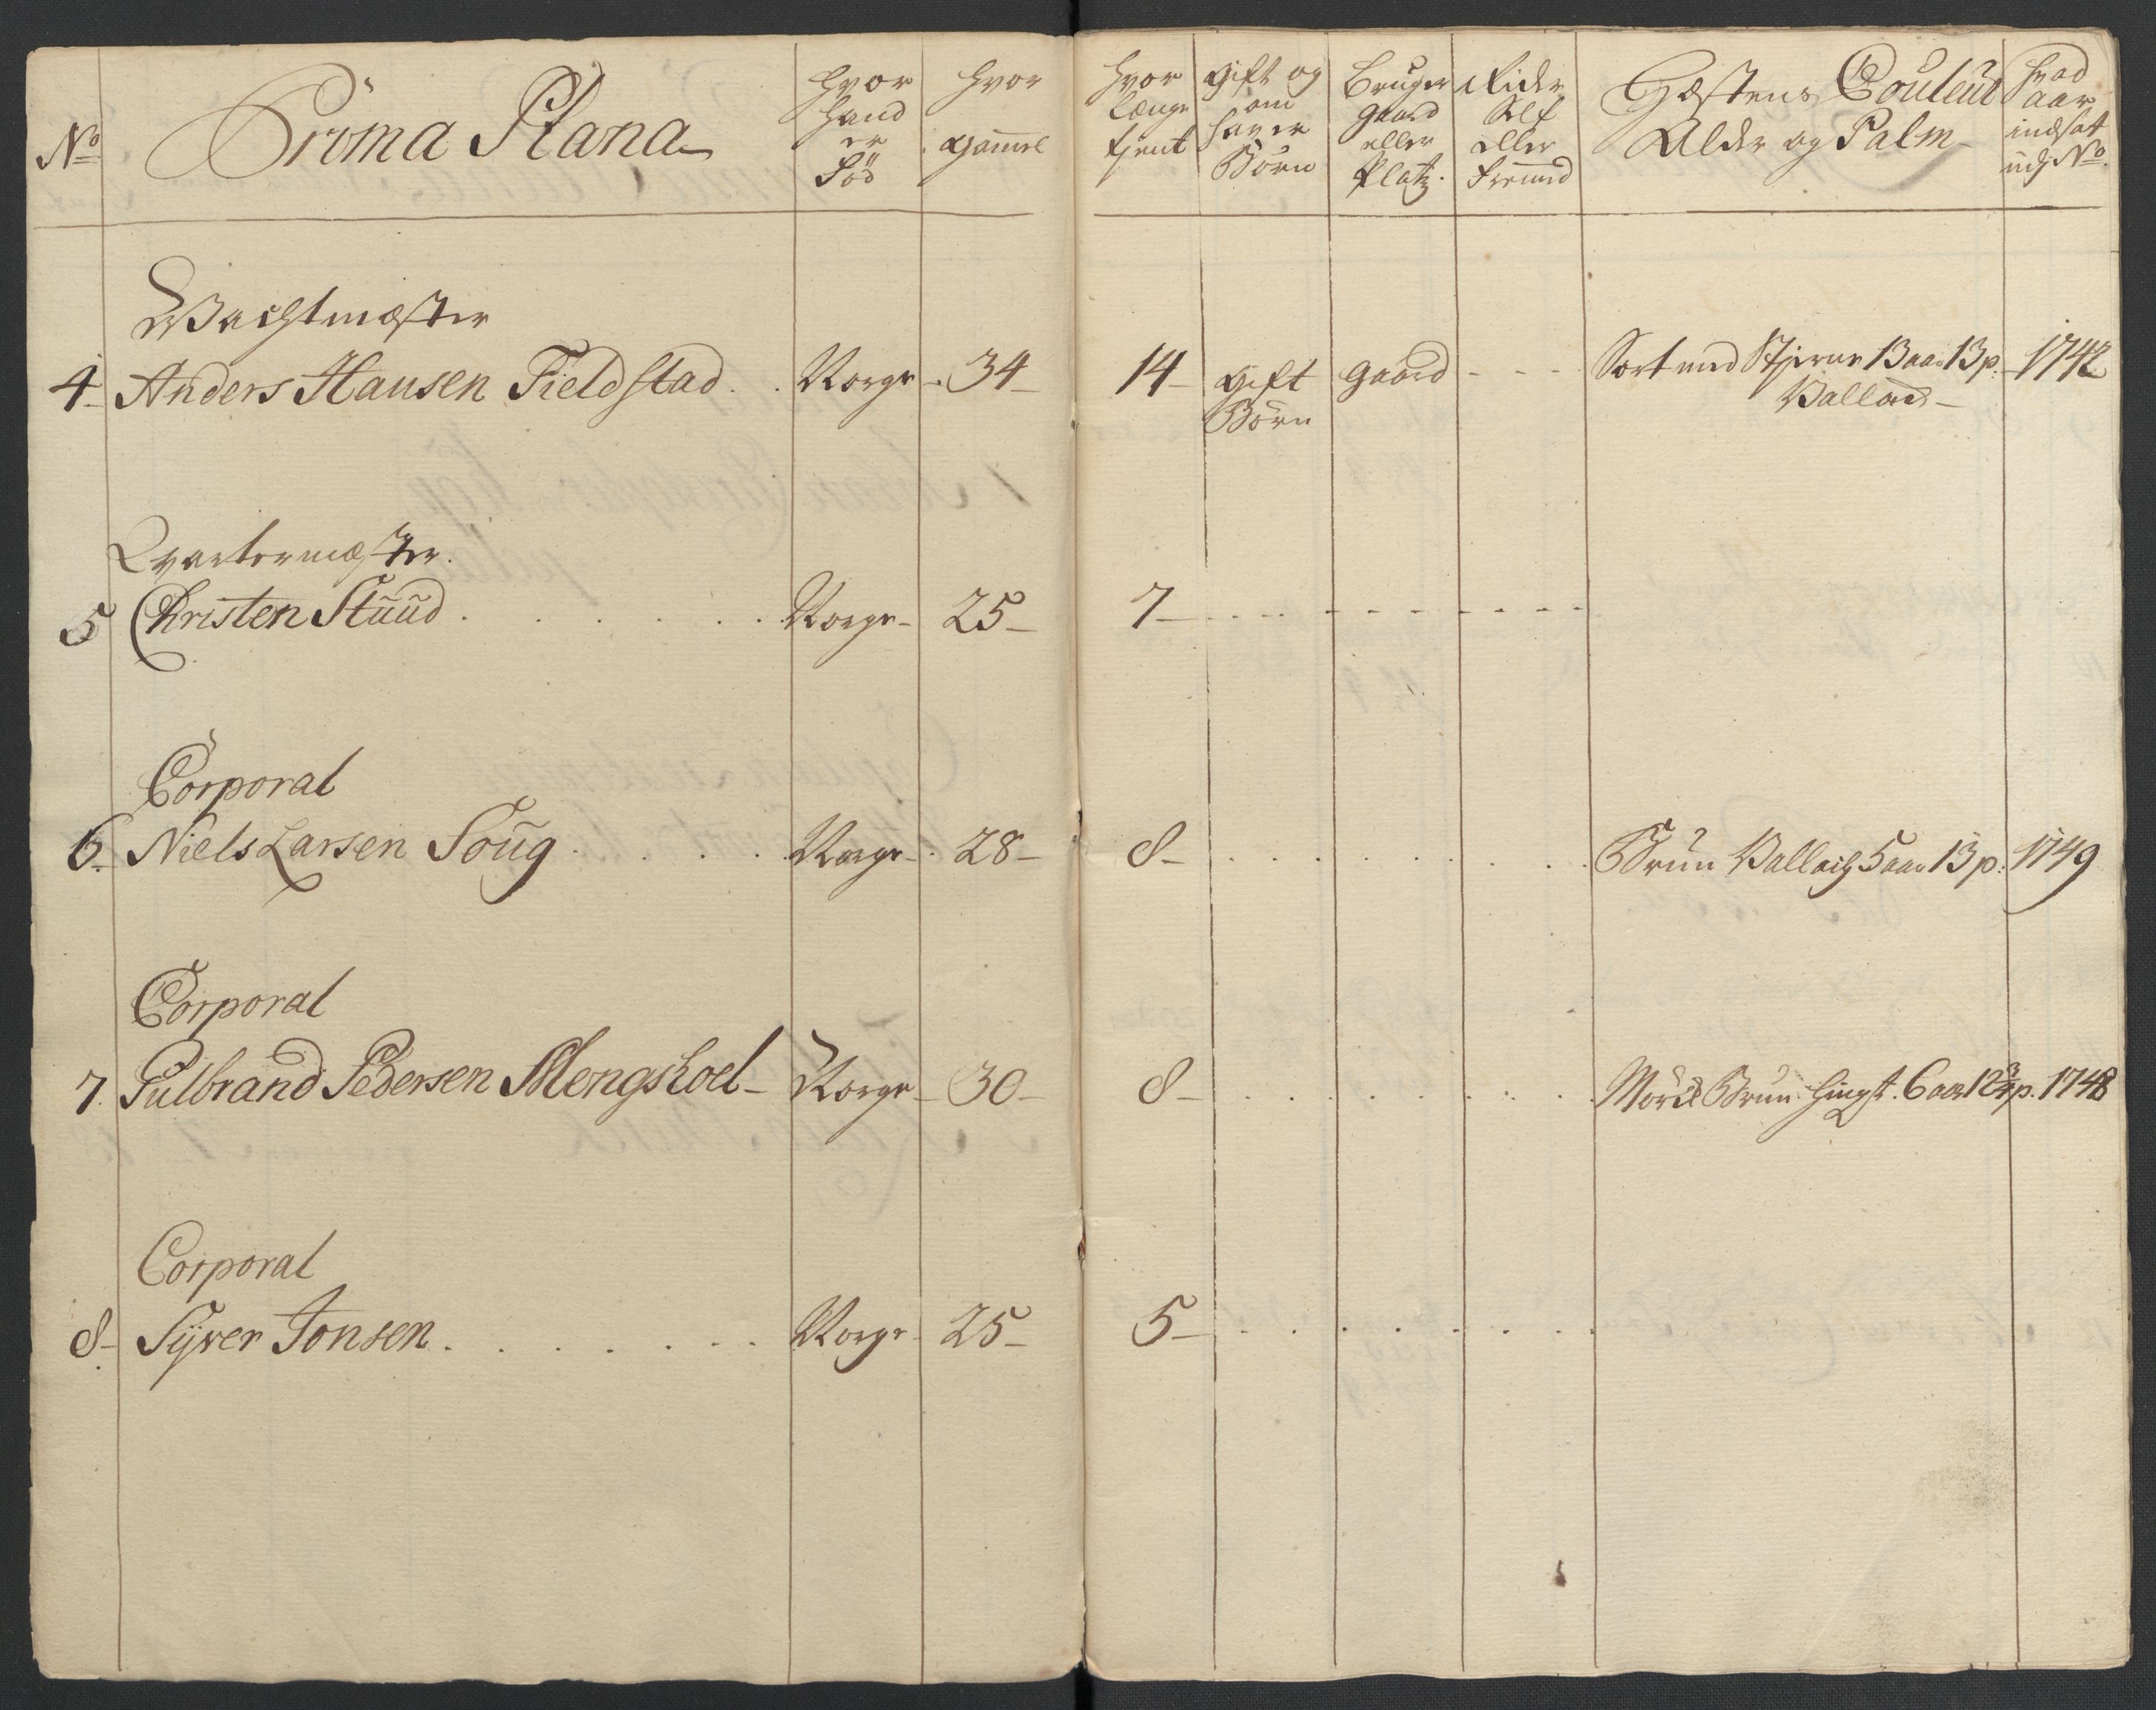 No Prima Plana hvor hand er Föd hvor gammel hvor længe tjent gift og om haver Börn Bruger gaard eller Platz. Rider Self eller fremmed Hæstens Couleur Alder og Palm hvad aar indsat udj No
Wachtmæster
4 Anders Hansen Fieldstad . . Norge 34 14 gift Börn gaard - - - Sort med Stjerne 13 aar 13 p. Vallack 1742
Qvartermæster.
5 Christen Stuud . . . . . . . Norge 25 7 - - - - - - - -
Corporal
6 Niels Larsen Soug . . . . . Norge 28 8 . . . . . . . . . Brun Vallach 5 aar 13 p. 1749
Corporal
7. Gulbrand Pedersen Mengshoel Norge 30 8 . . . . . . . . . Mörck Brun hingst. 6 aar p. 1748
Corporal
8 Syver Jonsen . . . . . . . Norge 25 5 . . . . . . . .